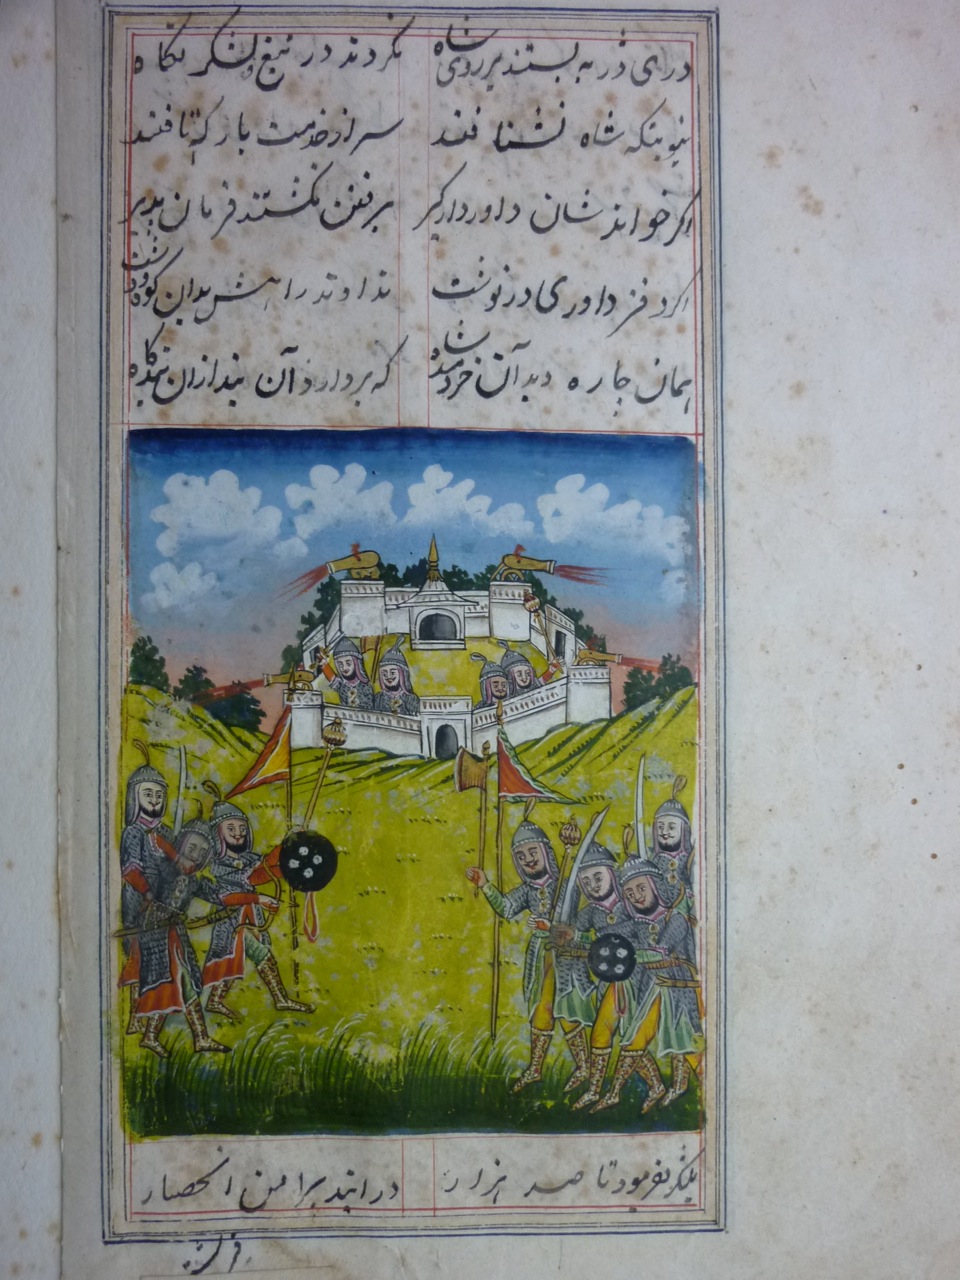 درای دژ به بستند بر روی شاه نکردند در تیغ و لشکر نگاه
بنوبتگه شاه نشتافتند سر از خدمت بارگه تافتند
اگر خواندشان داور برفتن نگشتند فرمان پذیر
اگر دفتر داوری در نوشت ندادند راهش بدان کوه و دشت
همان چاره دید آن خردمند شاه که بردارد آن بند ازان بندگاه
بلشکر بفرمود تا صد هزار درایند پیرامن آن حصار